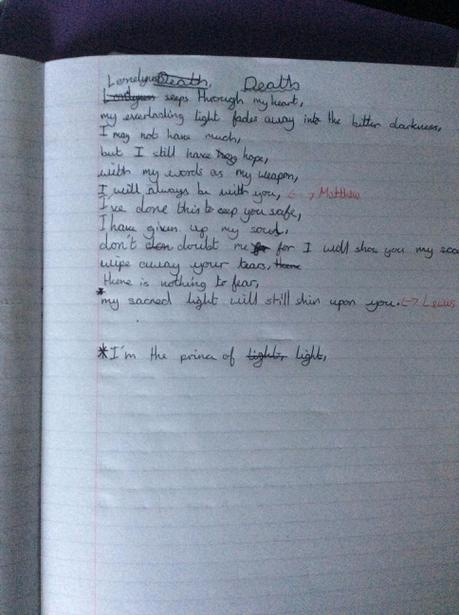 Lonelyness Death, Death
Lonlyness seeps through my heart,
my everlasting light fades away into the bitter darkness,
I may not have much,
but I still have hope,
with my words as my weapon,
I will always be with you, <-> Matthew
I've done this to ceep you safe,
I have given up my soul,
don't doubt me for for I will show you my
wipe away your tears, there
there is nothing to fear,
*
my sacred light will still shin upon you. <-> Lewis
*I'm the prince of light, light,